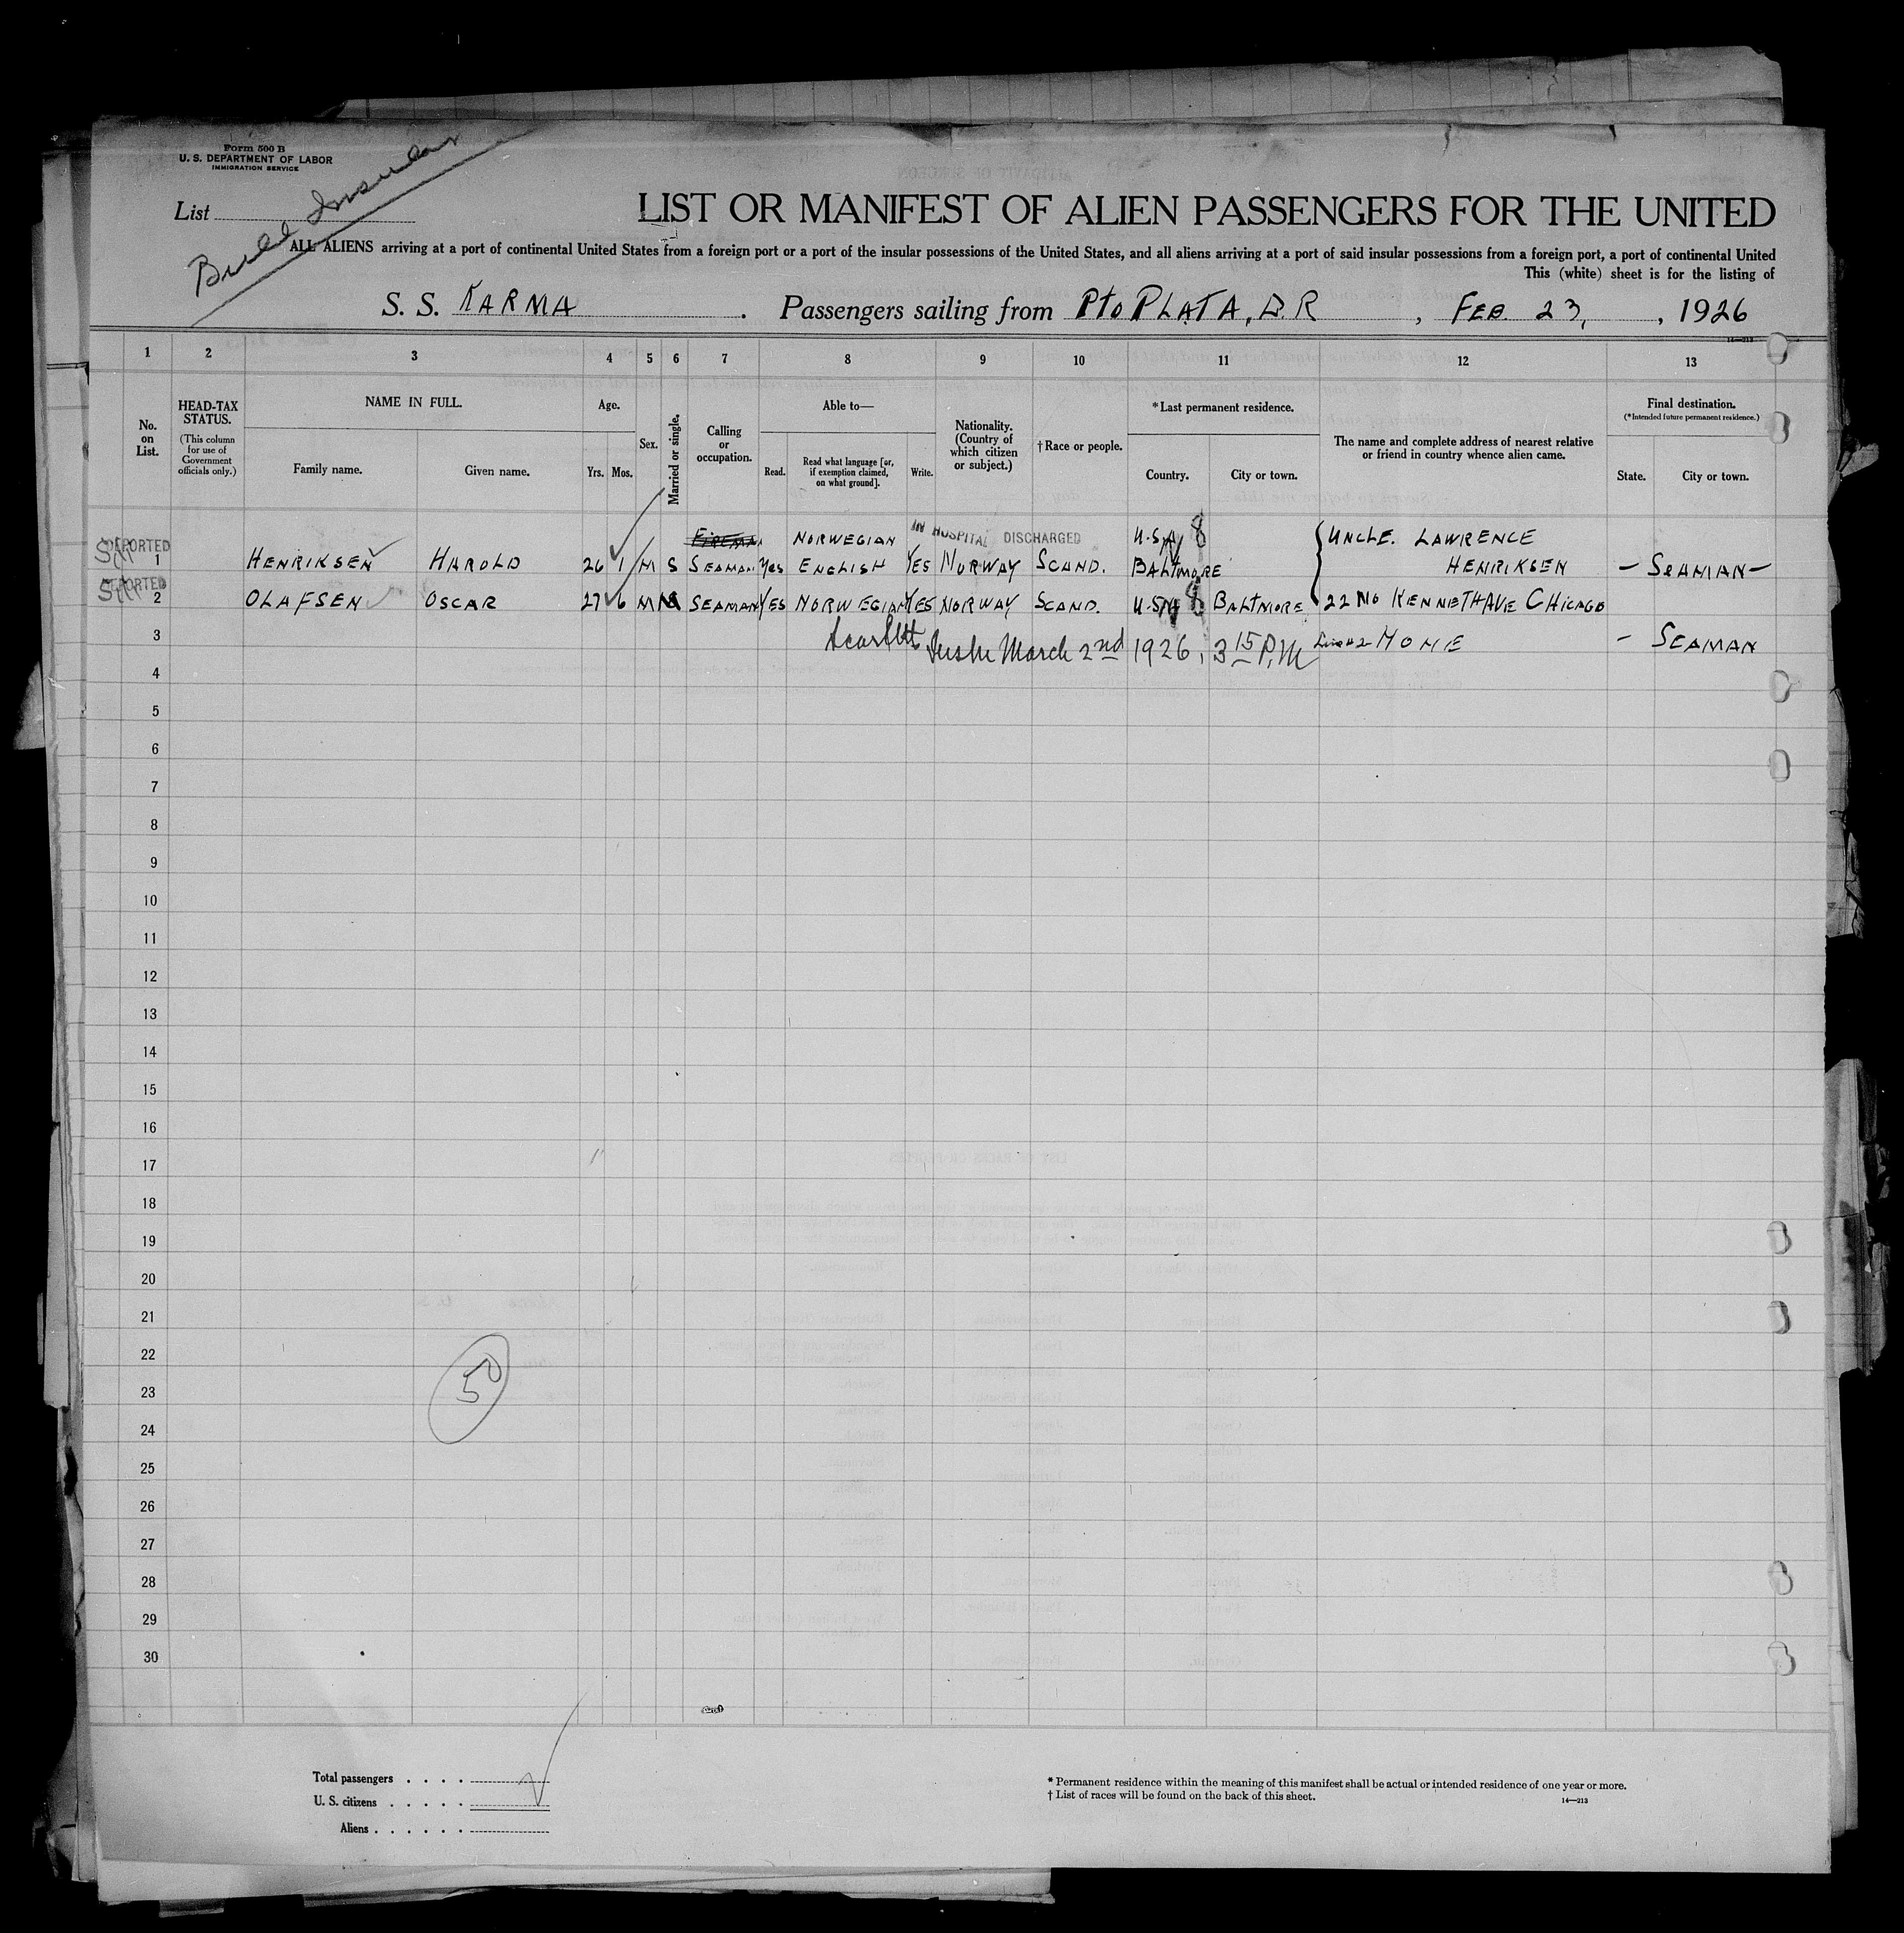 Form 500 B
U. S. DEPARTMENT OF LABOR
IMMIGRATION SERVICE
Bull Insular
List
LIST OR MANIFEST OF ALIEN PASSENGERS FOR THE UNITED
ALL ALIENS arriving at a port of continental United States from a foreign port or a port of the insular possessions of the United States, and all aliens arriving at a port of said insular possessions from a foreign port, a port of continental United
This (white) sheet is for the listing of
S. S. KARMA . Passengers sailing from Pto PLATA, D.R , FEB. 23, , 1926
14—213
1 2 3 4 5 6 7 8 9 10 11 12 13
No. on List.
HEAD-TAX STATUS.
(This column for use of Government officials only.)
NAME IN FULL.
Family name. Given name.
Age.
Yrs. Mos.
Sex.
Married or single.
Calling or occupation.
Able to—
Read. Read what language [or, if exemption claimed, on what ground]. Write.
Nationality. (Country of which citizen or subject.)
†Race or people.
*Last permanent residence.
Country. City or town.
The name and complete address of nearest relative or friend in country whence alien came.
Final destination.
(*Intended future permanent residence.)
State. City or town.
FIREMAN NORWEGIAN HOSPITAL DISCHARGED U.S.A. 8 UNCLE. LAWRENCE
1 HENRIKSEN HAROLD 26 1 M S SEAMAN Yes ENGLISH YES NORWAY SCAND. BALTIMORE HENRIKSEN — SEAMAN —
2 OLAFSEN OSCAR 27 6 M SEAMAN YES NORWEGIAN YES NORWAY SCAND. U.S.A 8 BALTMORE 22 NO KENNETH AVE CHICAGO
3 March 2nd 1926, 3 15 P.M - SEAMAN
4
5
6
7
8
9
10
11
12
13
14
15
16
17
18
19
20
21
22
23
24
25
26
27
28
29
30
50
Total passengers . . . .
U. S. citizens . . . . .
Aliens . . . . . .
* Permanent residence within the meaning of this manifest shall be actual or intended residence of one year or more.
† List of races will be found on the back of this sheet.
14—213